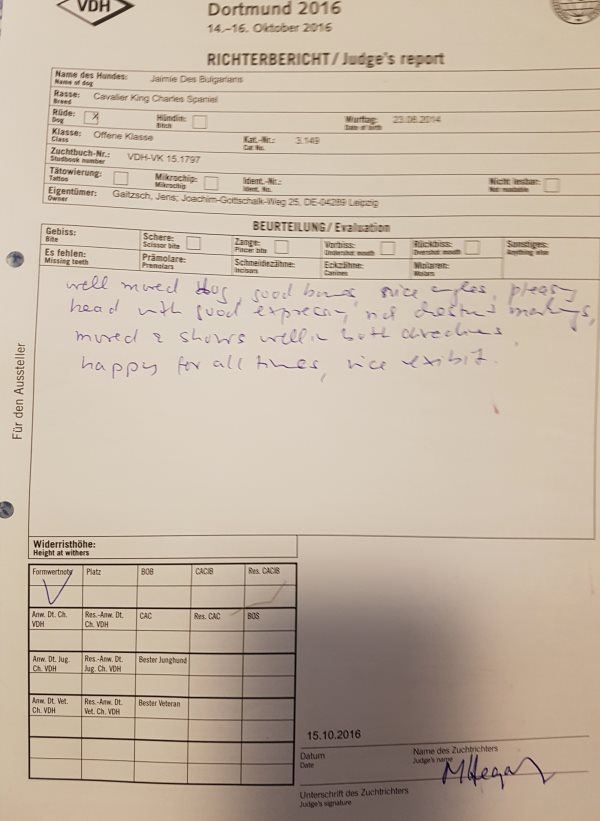 VDH
Dortmund 2016
14.–16. Oktober 2016
RICHTERBERICHT / Judge's report
Name des Hundes: Jaimie Des Bulgarians
Name of dog
Rasse: Cavalier King Charles Spaniel
Breed
Rüde: X Hündin: Wurftag: 23.08.2014
Dog Bitch Date of birth
Klasse: Offene Klasse Kat.-Nr.: 3.149
Class Cat. No.
Zuchtbuch-Nr.: VDH-VK 15.1797
Studbook number
Tätowierung: Mikrochip: Ident.-Nr.: Nicht lesbar:
Tattoo Mikrochip Ident. No. Not readable
Eigentümer: Gaitzsch, Jens; Joachim-Gottschalk-Weg 25, DE-04289 Leipzig
Owner
BEURTEILUNG / Evaluation
Gebiss: Schere: Zange: Vorbiss: Rückbiss: Sonstiges:
Bite Scissor bite Pincer bite Undershot mouth Overshot mouth Anything else
Es fehlen: Prämolare: Schneidezähne: Eckzähne: Molaren:
Missing teeth Premolars Incisors Canines Molars
well moved dog, good bones, nice angles,
head with good expression, markings,
moved & shows well in both directions,
happy for all times, nice exibit.
Für den Aussteller
Widerristhöhe:
Height at withers
Formwertnote Platz BOB CACIB Res. CACIB
Anw. Dt. Ch. VDH Res.-Anw. Dt. Ch. VDH CAC Res. CAC BOS
Anw. Dt. Jug. Ch. VDH Res.-Anw. Dt. Jug. Ch. VDH Bester Junghund
Anw. Dt. Vet. Ch. VDH Res.-Anw. Dt. Vet. Ch. VDH Bester Veteran
15.10.2016
Datum Name des Zuchtrichters
Date Judge's name
Unterschrift des Zuchtrichters
Judge's signature